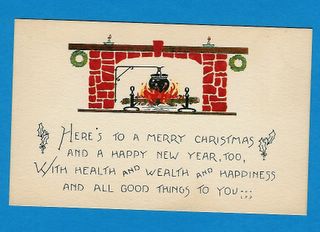 Here's to a Merry Christmas
and a Happy New Year, too,
With health and wealth and happiness
and all good things to you---